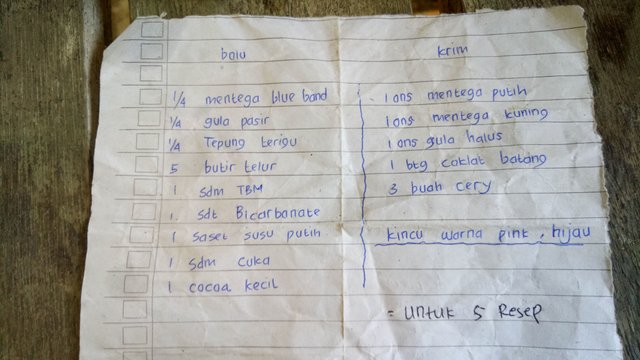 bolu
1/4 mentega blue band
1/4 gula pasir
1/4 Tepung terigu
5 butir telur
1 sdm TBM
1. sdt Bicarbonate
1 saset susu putih
1 sdm cuka
1 cocoa kecil
krim
1 ons mentega putih
1 ons mentega kuning
1 ons gula halus
1 btg coklat batang
3 buah cery
kincu warna pink, hijau
= untuk 5 Resep